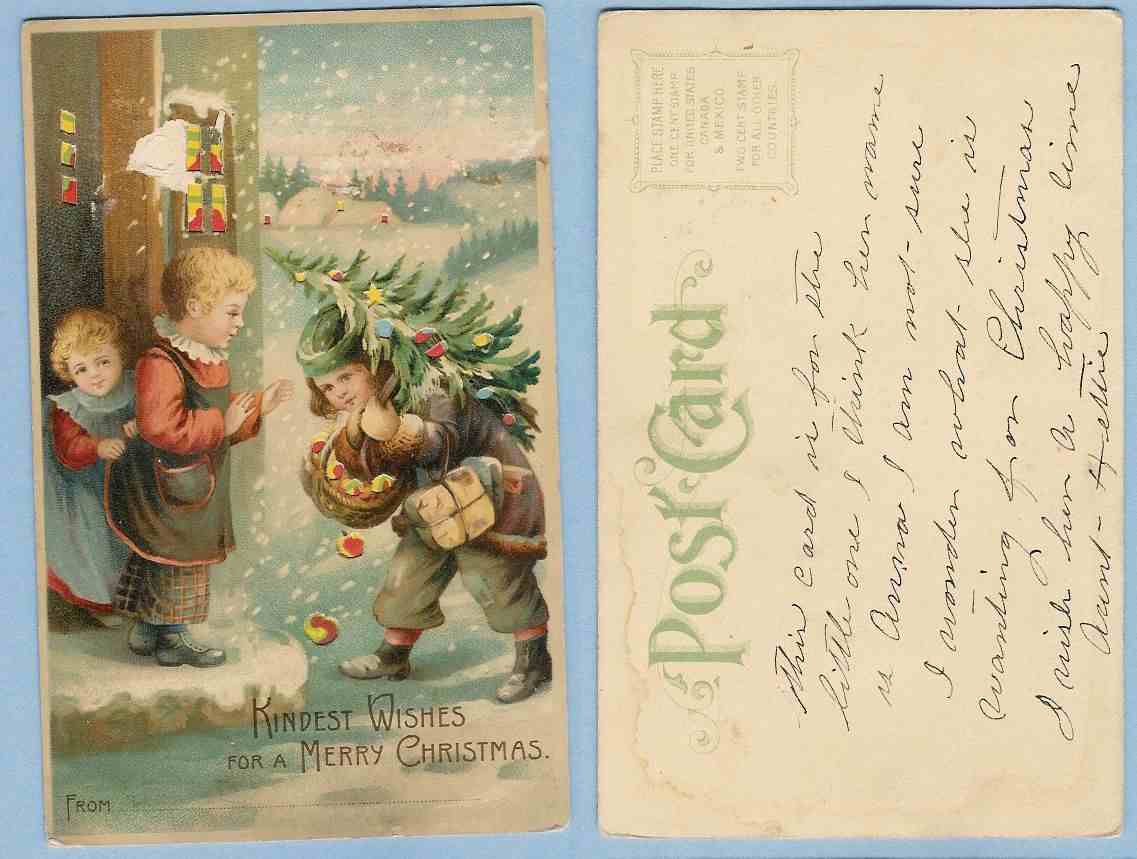 KINDEST WISHES
FOR A MERRY CHRISTMAS.
FROM
PLACE STAMP HERE
ONE CENT STAMP
FOR UNITED STATES
CANADA
& MEXICO
TWO CENT STAMP
FOR ALL OTHER
COUNTRIES.
Post Card
This card is for the
little one I think her name
is Anna I am not sure
I wonder what she is
wanting for Christmas
I wish her a happy time
Aunt Hettie